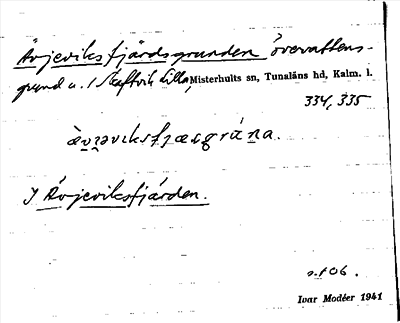 Ävjeviksfjärdsgrunden övervattens-
grund u. / Skaftvik lilla, Misterhults sn, Tunaläns hd, Kalm. l.
334, 335
I Ävjeviksfjärden.
s. 106.
Ivar Modéer 1941